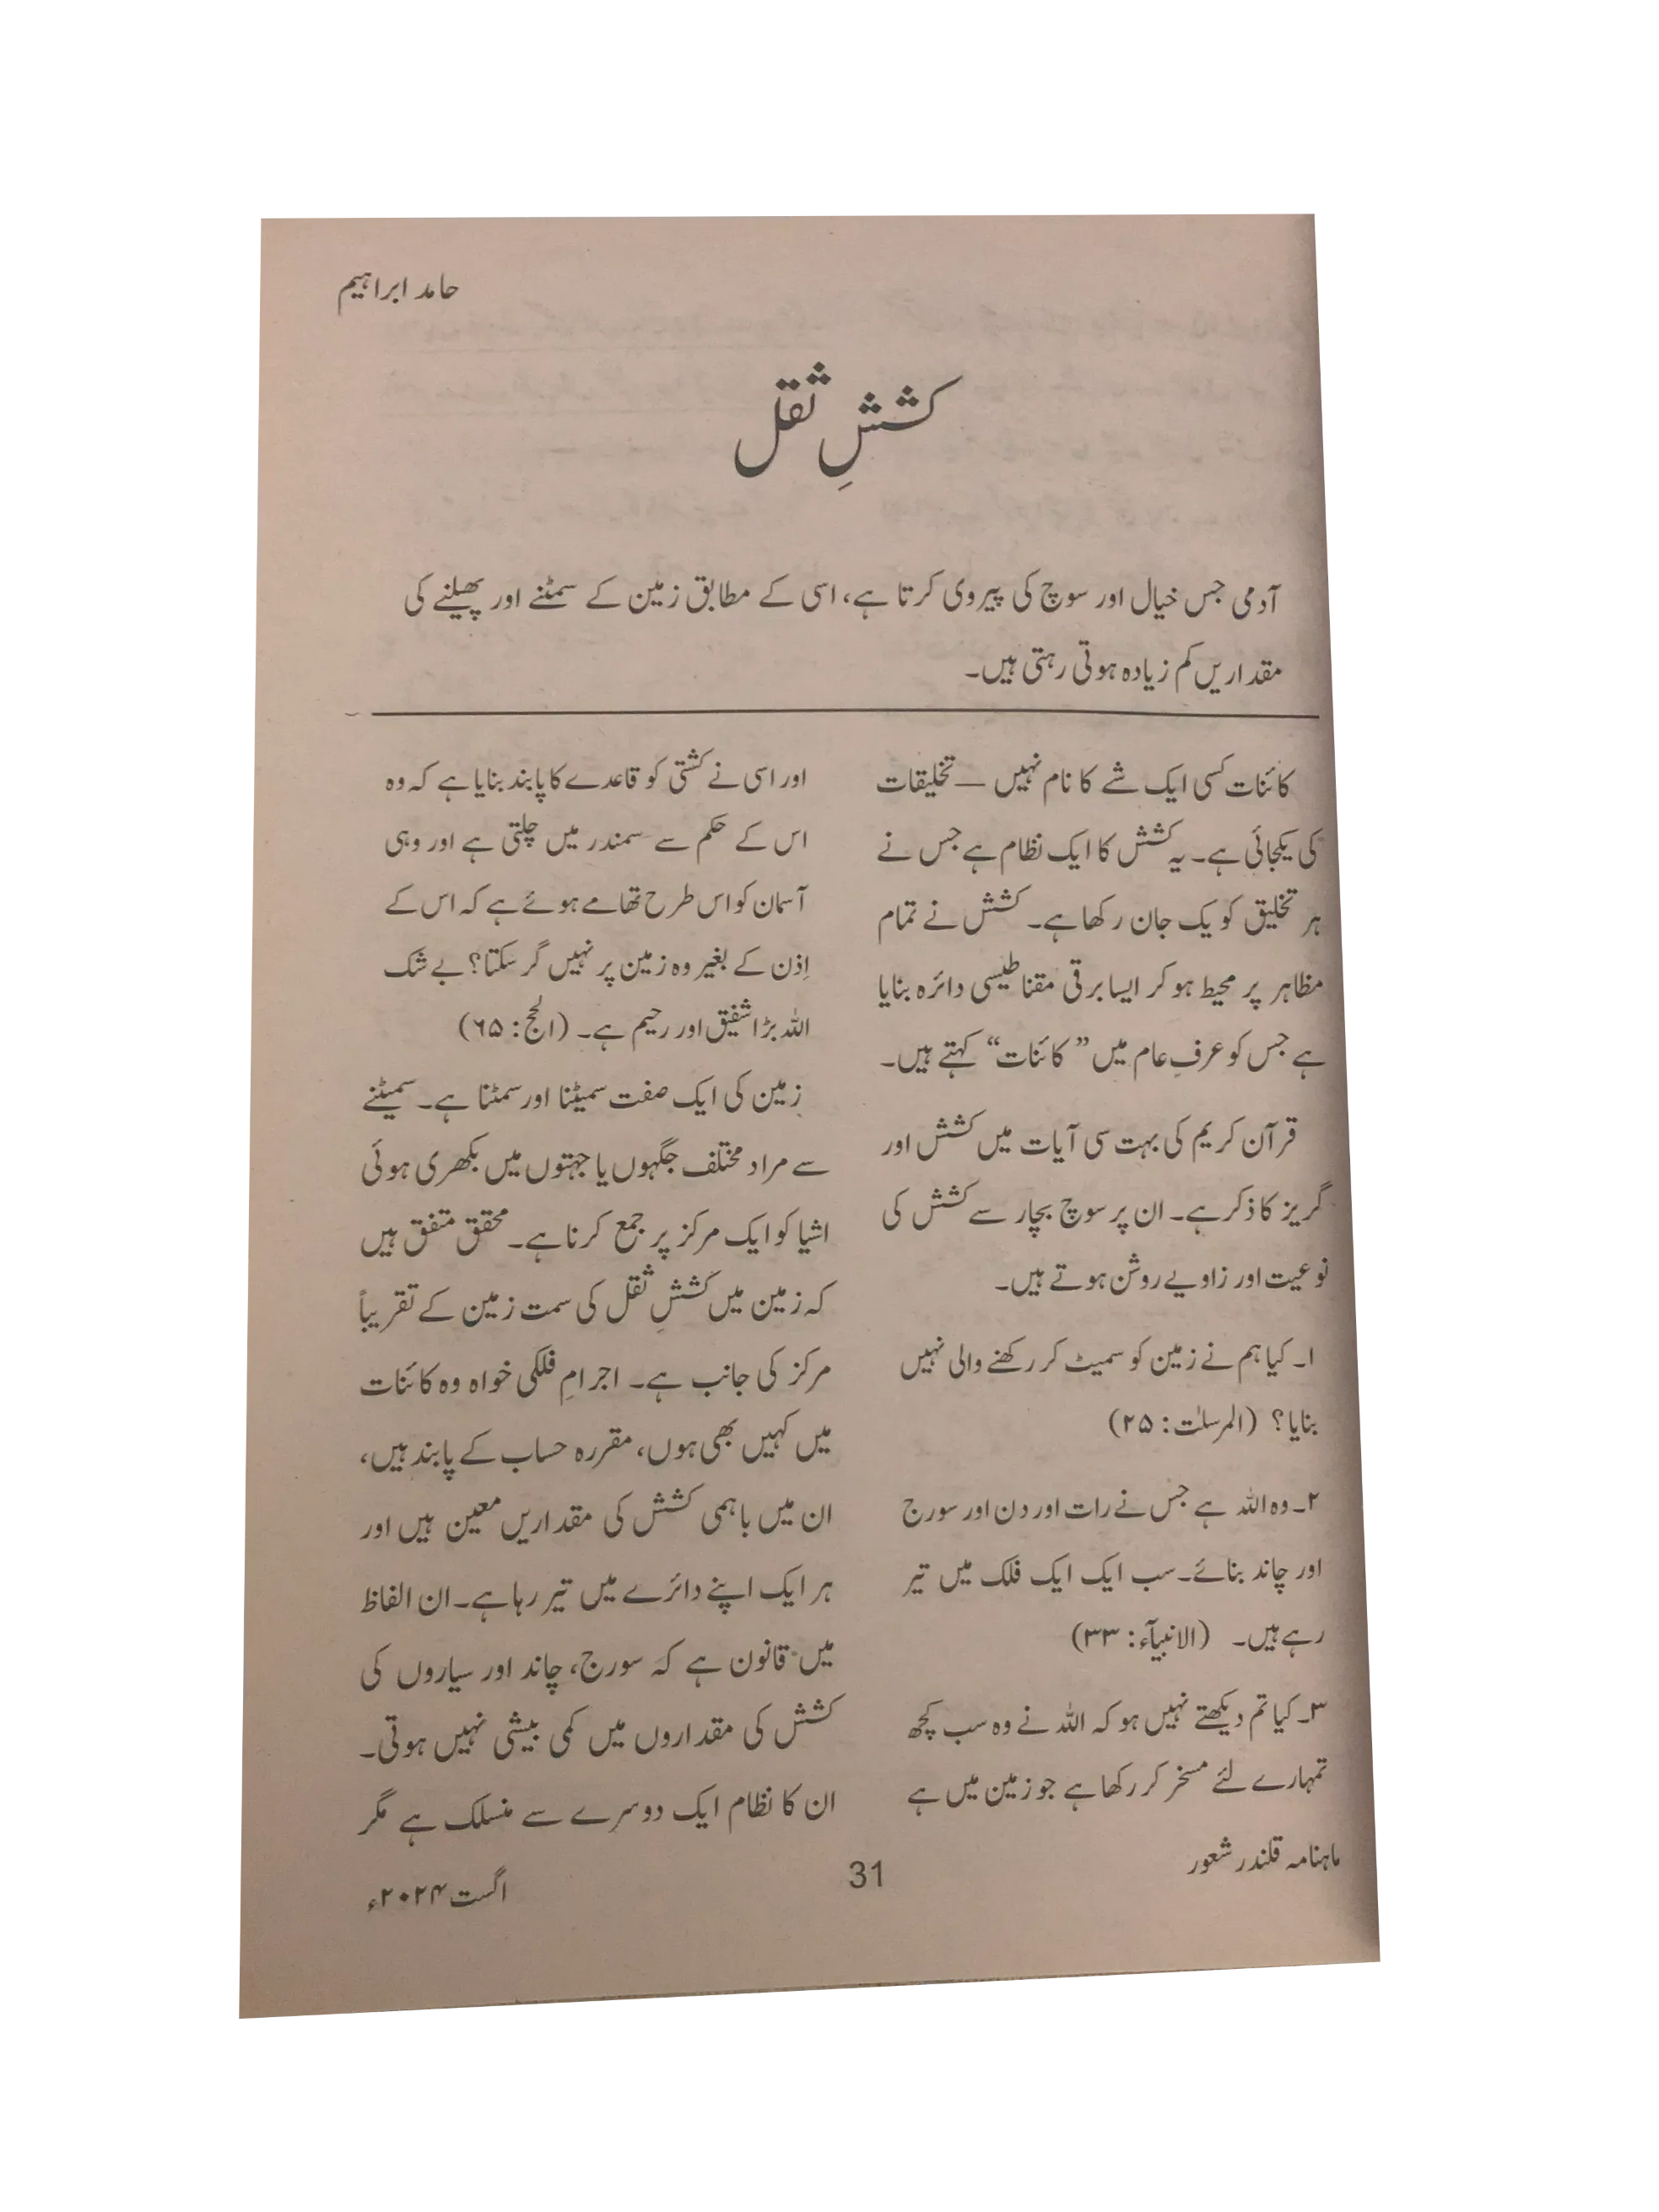 حامد ابراہیم
کششِ ثقل
آدمی جس خیال اور سوچ کی پیروی کرتا ہے، اسی کے مطابق زمین کے سمٹنے اور پھیلنے کی
مقداریں کم زیادہ ہوتی رہتی ہیں۔
کائنات کسی ایک شے کا نام نہیں — تخلیقات
کی یکجائی ہے۔ یہ کشش کا ایک نظام ہے جس نے
ہر تخلیق کو یک جان رکھا ہے۔ کشش نے تمام
مظاہر پر محیط ہو کر ایسا برقی مقناطیسی دائرہ بنایا
ہے جس کو عرفِ عام میں ”کائنات“ کہتے ہیں۔
قرآن کریم کی بہت سی آیات میں کشش اور
گریز کا ذکر ہے۔ ان پر سوچ بچار سے کشش کی
نوعیت اور زاویے روشن ہوتے ہیں۔
۱۔ کیا ہم نے زمین کو سمیٹ کر رکھنے والی نہیں
بنایا؟ (المرسلٰت: ۲۵)
۲۔ وہ اللہ ہے جس نے رات اور دن اور سورج
اور چاند بنائے۔ سب ایک ایک فلک میں تیر
رہے ہیں۔ (الانبیآء: ۳۳)
۳۔ کیا تم دیکھتے نہیں ہو کہ اللہ نے وہ سب کچھ
تمہارے لئے مسخر کر رکھا ہے جو زمین میں ہے
اور اسی نے کشتی کو قاعدے کا پابند بنایا ہے کہ وہ
اس کے حکم سے سمندر میں چلتی ہے اور وہی
آسمان کو اس طرح تھامے ہوئے ہے کہ اس کے
اِذن کے بغیر وہ زمین پر نہیں گر سکتا؟ بے شک
اللہ بڑا شفیق اور رحیم ہے۔ (الحج: ۶۵)
زمین کی ایک صفت سمیٹنا اور سمٹنا ہے۔ سمیٹنے
سے مراد مختلف جگہوں یا جہتوں میں بکھری ہوئی
اشیا کو ایک مرکز پر جمع کرنا ہے۔ محقق متفق ہیں
کہ زمین میں کششِ ثقل کی سمت زمین کے تقریباً
مرکز کی جانب ہے۔ اجرامِ فلکی خواہ وہ کائنات
میں کہیں بھی ہوں، مقررہ حساب کے پابند ہیں،
ان میں باہمی کشش کی مقداریں معین ہیں اور
ہر ایک اپنے دائرے میں تیر رہا ہے۔ ان الفاظ
میں قانون ہے کہ سورج، چاند اور سیاروں کی
کشش کی مقداروں میں کمی بیشی نہیں ہوتی۔
ان کا نظام ایک دوسرے سے منسلک ہے مگر
ماہنامہ قلندر شعور
31
اگست ۲۰۲۴ء